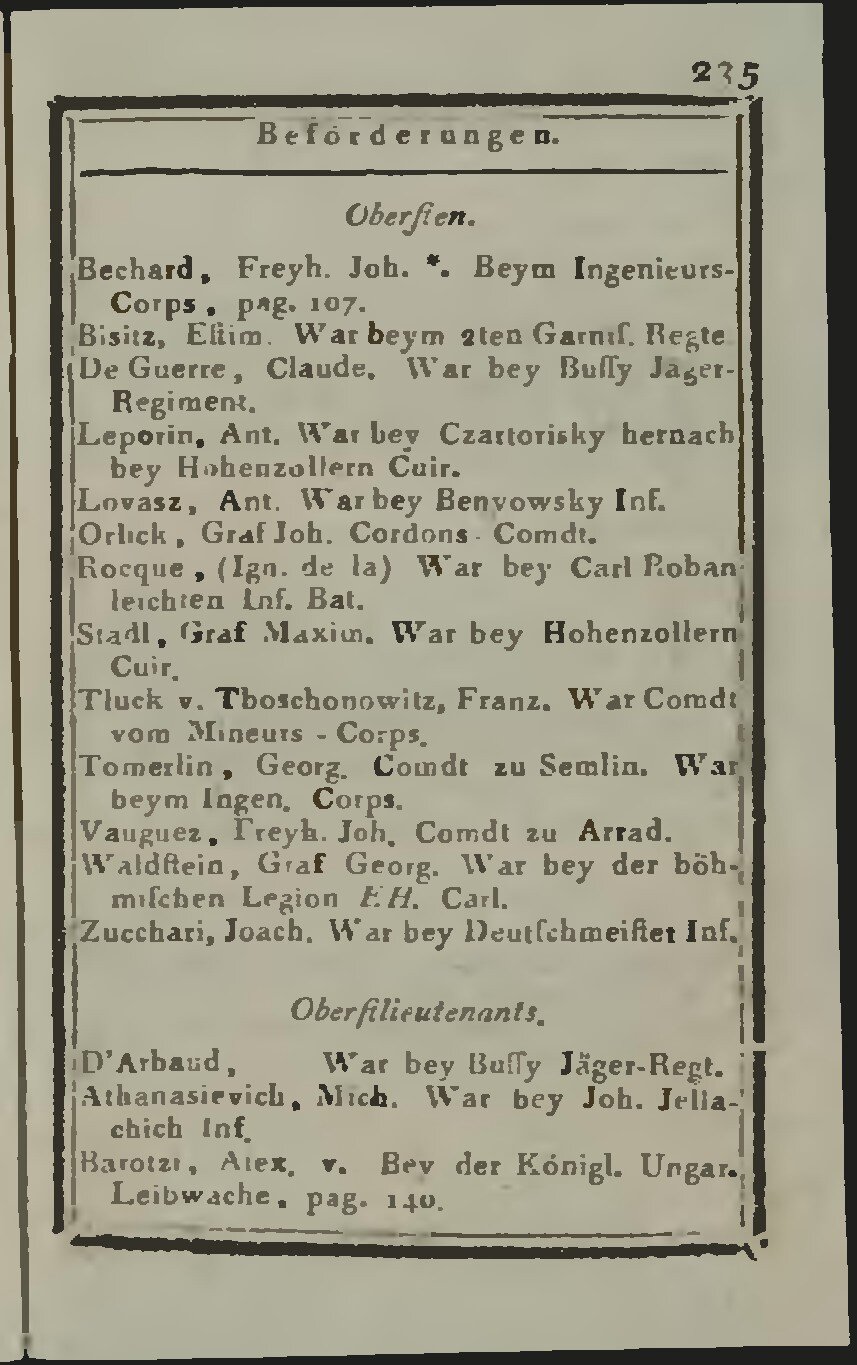 235
Beförderungen.
Oberſten.
Bechard, Freyh. Joh. *. Beym Ingenieurs-
Corps, pag. 107.
Bisitz, Eſtim. War beym 2ten Garniſ. Regte
De Guerre, Claude. War bey Buſſy Jäger-
Regiment.
Leporin, Ant. War bey Czartorisky hernach
bey Hohenzollern Cuir.
Lovasz, Ant. War bey Benyowsky Inf.
Orlick, Graf Joh. Cordons-Comdt.
Rocque, (Ign. de la) War bey Carl Rohan
leichten Inf. Bat.
Stadl, Graf Maxim. War bey Hohenzollern
Cuir.
Tluck v. Tboschonowitz, Franz. War Comdt
vom Mineurs-Corps.
Tomerlin, Georg. Comdt zu Semlin. War
beym Ingen. Corps.
Vauguez, Freyh. Joh. Comdt zu Arrad.
Waldſtein, Graf Georg. War bey der böh-
miſchen Legion EH. Carl.
Zucchari, Joach. War bey Deutſchmeiſter Inf.
Oberſtlieutenants.
D'Arbaud, War bey Buſſy Jäger-Regt.
Athanasievich, Mich. War bey Joh. Jella-
chich Inf.
Barotzi, Alex. v. Bey der Königl. Ungar.
Leibwache, pag. 140.